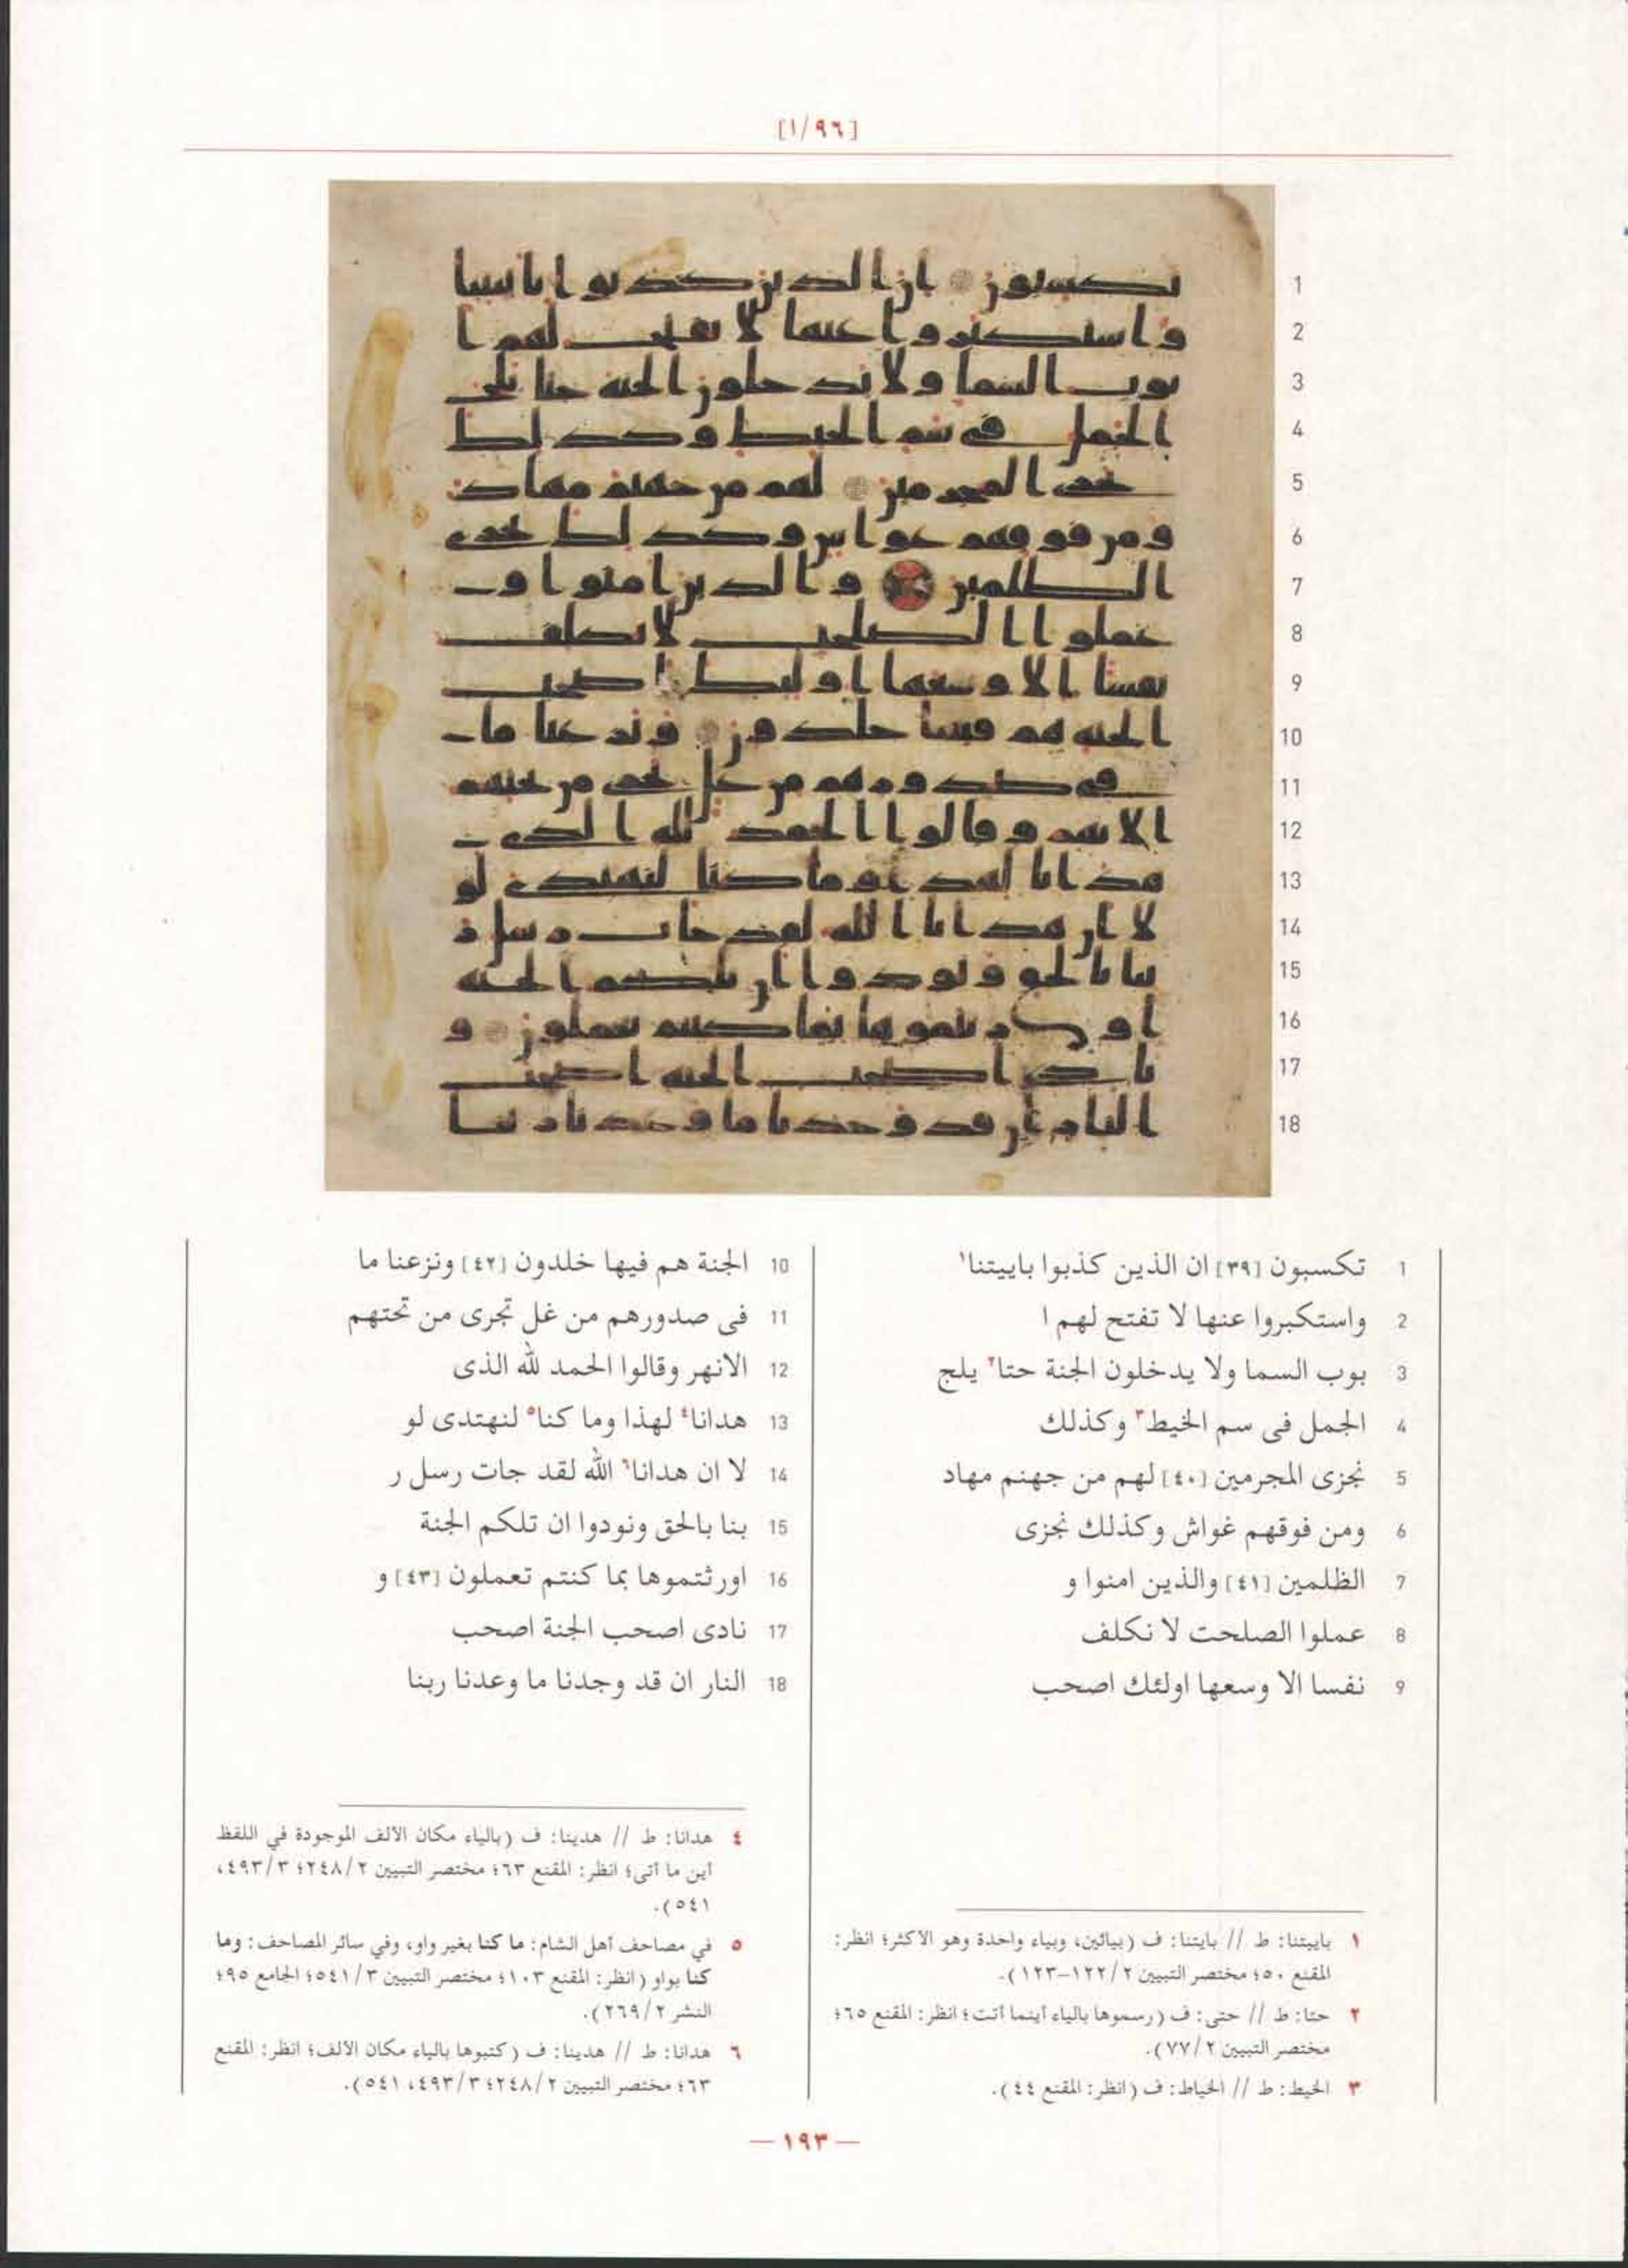 [٩٦/١]
1 تكسبون [٣٩] ان الذين كذبوا باييتنا١
2 واستكبروا عنها لا تفتح لهم ا
3 بوب السما ولا يدخلون الجنة حتا٢ يلج
4 الجمل فى سم الخيط٣ وكذلك
5 نجزى المجرمين [٤٠] لهم من جهنم مهاد
6 ومن فوقهم غواش وكذلك نجزى
7 الظلمين [٤١] والذين امنوا و
8 عملوا الصلحت لا نكلف
9 نفسا الا وسعها اولئك اصحب
10 الجنة هم فيها خلدون [٤٢] ونزعنا ما
11 فى صدورهم من غل تجرى من تحتهم
12 الانهر وقالوا الحمد لله الذى
13 هدانا٤ لهذا وما كنا٥ لنهتدى لو
14 لا ان هدانا٦ الله لقد جات رسل ر
15 بنا بالحق ونودوا ان تلكم الجنة
16 اورثتموها بما كنتم تعملون [٤٣] و
17 نادى اصحب الجنة اصحب
18 النار ان قد وجدنا ما وعدنا ربنا
١ باييتنا: ط // بايتنا: ف (بيائين، وبياء واحدة وهو الأكثر؛ انظر:
المقنع ٥٠؛ مختصر التبيين ١٢٢/٢-١٢٣).
٢ حتا: ط // حتى: ف (رسموها بالياء أينما أتت؛ انظر: المقنع ٦٥؛
مختصر التبيين ٧٧/٢).
٣ الخيط: ط // الخياط: ف (انظر: المقنع ٤٤).
٤ هدانا: ط // هدينا: ف (بالياء مكان الألف الموجودة في اللفظ
أين ما أتى؛ انظر: المقنع ٦٣؛ مختصر التبيين ٢٤٨/٢؛ ٤٩٣/٣،
٥٤١).
٥ في مصاحف أهل الشام: ما كنا بغير واو، وفي سائر المصاحف: وما
كنا بواو (انظر: المقنع ١٠٣؛ مختصر التبيين ٥٤١/٣؛ الجامع ٩٥؛
النشر ٢٦٩/٢).
٦ هدانا: ط // هدينا: ف (كتبوها بالياء مكان الألف؛ انظر: المقنع
٦٣؛ مختصر التبيين ٢٤٨/٢؛ ٤٩٣/٣، ٥٤١).
— ١٩٣ —